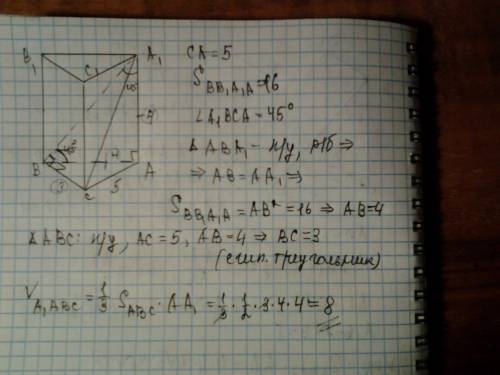 B₁
A₁
C₁
45°
B
45°
3
4
4
A
5
C
CA = 5
S_BB₁A₁A = 16
∠A₁BCA = 45°
△ABA₁ - п/у, р/б ⇒
⇒ AB = AA₁ ⇒
S_BB₁A₁A = AB² = 16 ⇒ AB = 4
△ABC: п/у, AC = 5, AB = 4 ⇒ BC = 3
(егип. треугольник)
V_A₁ABC = 1/3 S_ABC · AA₁ = 1/3 · 1/2 · 3 · 4 · 4 = 8